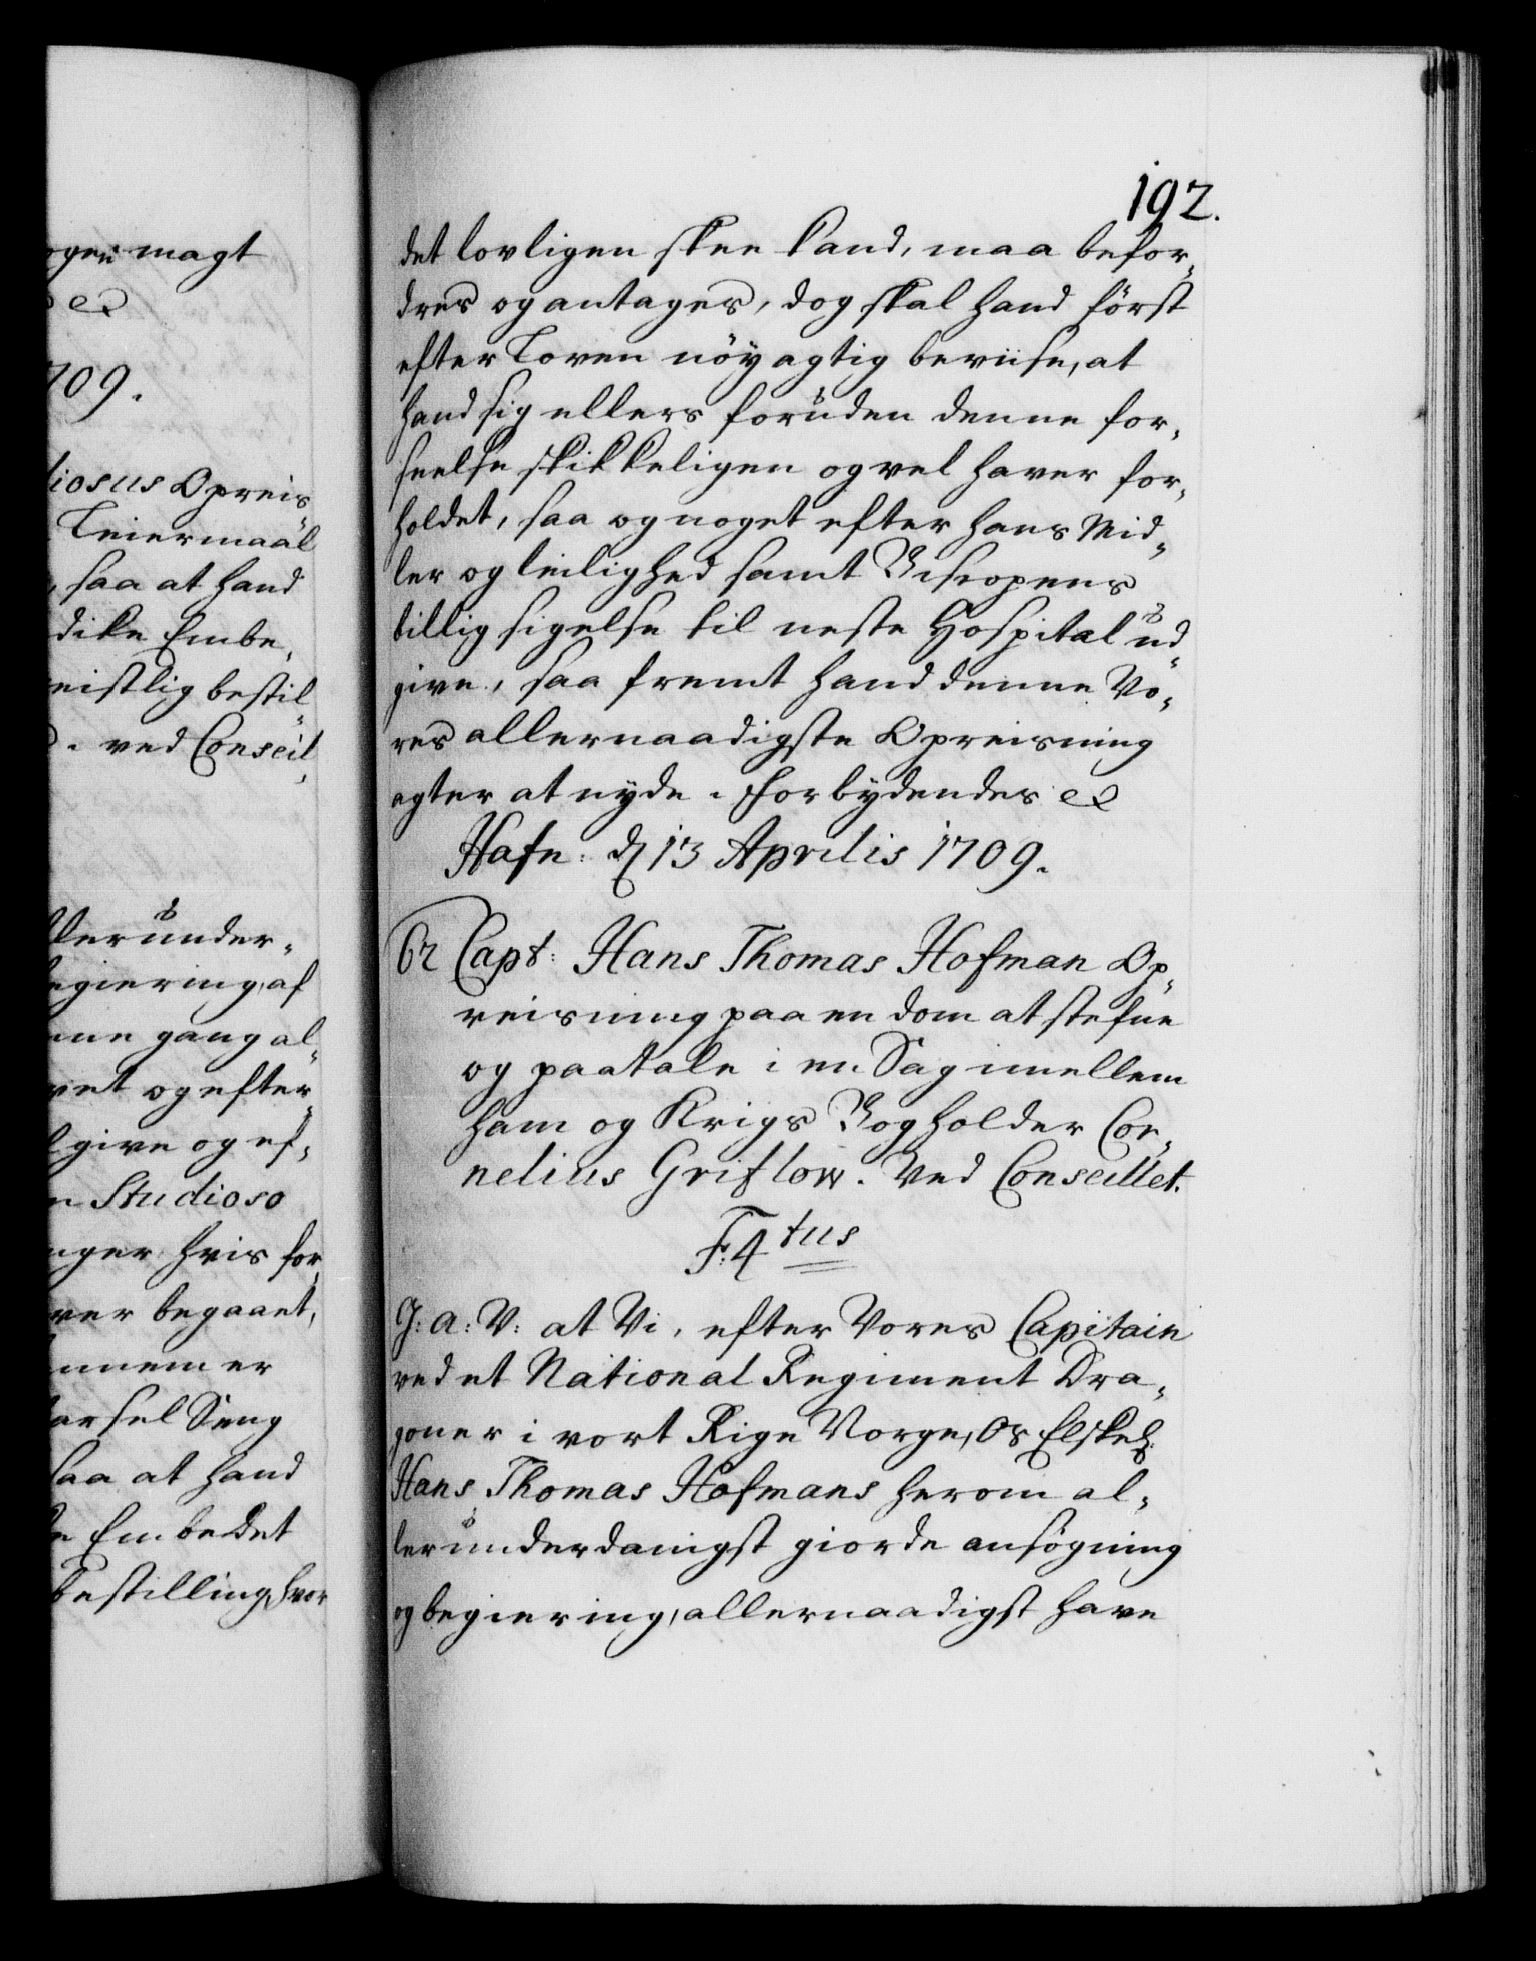 ogen magt
&
709.
diosus Opreis„
Leiermaal
, saa at hand
dike Embe„
eistlig bestil„
. ved Conseil„
ller under„
egiering, af
nne gang al„
vet og efter„
l give og ef„
n Studioso
nger hvis for„
ver begaaet,
nnem er
barsel Seng
saa at hand
e Embedet
bestilling, hvor
192.
det lovligen skee kand, maa befor„
dres og antages, dog skal hand först
efter Loven nöyagtig beviise, at
hand sig ellers foruden denne for„
seelse skikkeligen og vel haver for„
holdet, saa og noget efter hans Mid„
ler og leilighed samt Biscopens
billig sigelse til neste Hospital ud„
give, saa fremt hand denne Vo„
res allernaadigste Opreisning
agter at nyde. Forbydendes &
Hafn: d 13 Aprilis 1709.
Capt: Hans Thomas Hofman Op„
reisning paa en dom at stefne
og paatale i en Sag imellem
ham og Krigs Bogholder Cor„
nelius Griflow. Ved Conseillet.
F: 4tus
G: A: V: at Vi, efter Vores Capitain
ved et National Regiment Dra„
goner i vort Rige Norge, Os Elskel:
Hans Thomas Hofmans herom al„
lerunderdanigst giorde ansögning
og begiering, allernaadigst have